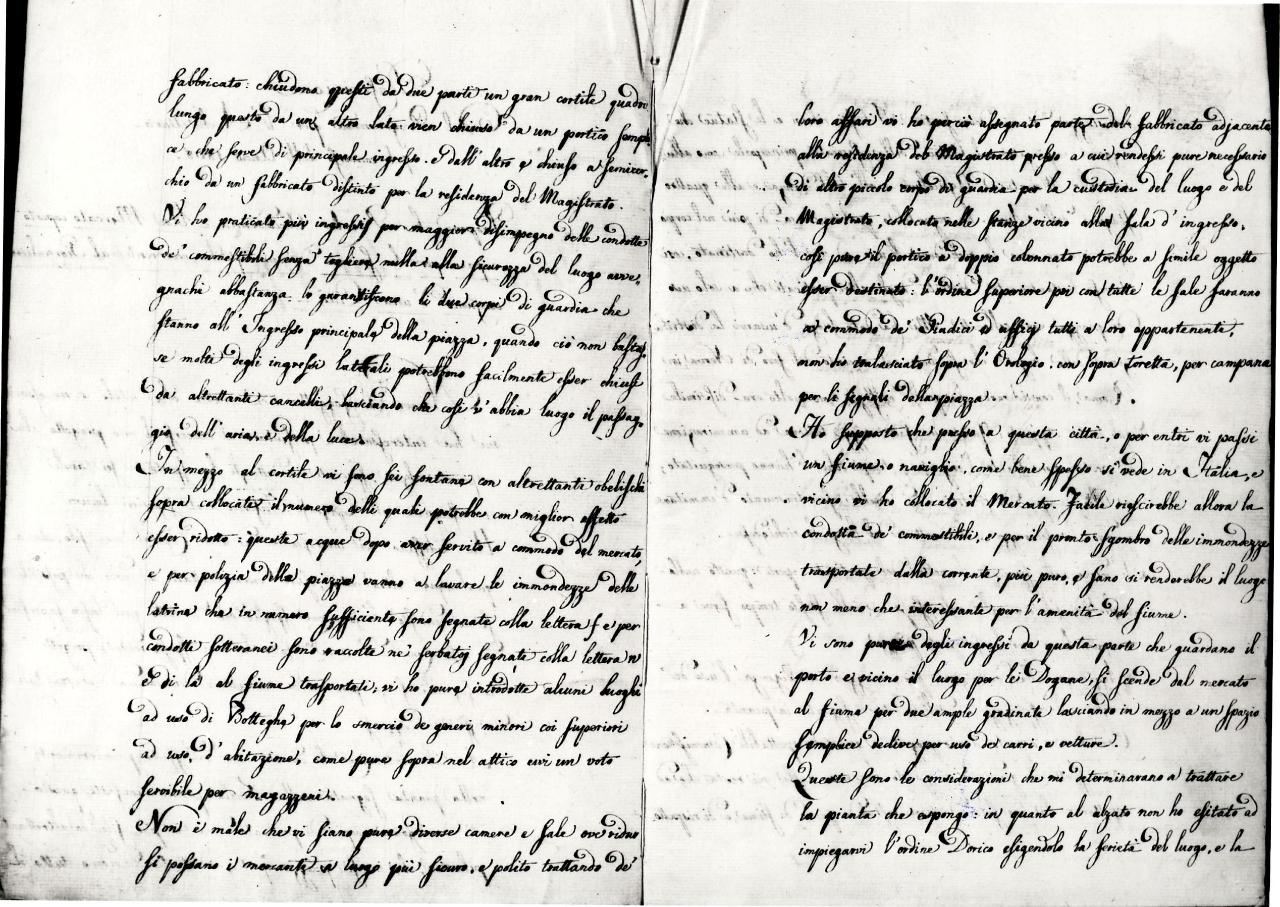 fabbricato: chiudono questi da due parti un gran cortile quadri
lungo questo da un altro lato vien chiuso da un portico sempli
ce, che serve di principale ingresso. e dall'altro è chiuso a semicer:
chio da un fabbricato distinto per la residenza del Magistrato.
Vi ho praticato più ingressi per maggior disimpegno delle condotte
de' commestibili senza togliere nulla alla sicurezza del luogo avve:
gnachi abbastanza lo guarantiscono li due corpi di guardia che
stanno all'Ingresso principale della piazza, quando ciò non bastas:
se molti degli ingressi laterali potrebbono facilmente esser chiusi
da altrettanti cancelli, lasciando che così v'abbia luogo il passag:
gio dell'aria, e della luce.
In mezzo al cortile vi sono sei fontane con altrettanti obelischi
sopra collocati il numero delli quali potrebbe con miglior effetto
esser ridotto: queste acque dopo aver servito a commodo del mercato,
e per polizia della piazza vanno a lavare le immondezze delle
latrine che in numero sufficiente sono segnate colla lettera f e per
condotti sotteranei sono raccolte ne' serbatoj segnate colla lettera n
e di là al fiume trasportati; vi ho pure introdotte alcuni luoghi
ad uso di Botteghe per lo smercio de generi minori coi superiori
ad uso d'abitazione, come pure sopra nel attico evvi un voto
servibile per magazzeni.
Non è male che vi siano pure diverse camere e sale ove ridur
si possano i mercanti a luogo più sicuro, e polito trattando de'
loro affari vi ho perciò assegnato parte del fabbricato adjacente
alla residenza del Magistrato presso a cui rendessi pure necessario
di altro piccolo corpo di guardia per la custodia del luogo e del
Magistrato, collocato nelle stanze vicino alla sala d'ingresso.
così pure il portico a doppio colonnato potrebbe a simile oggetto
esser destinato: l'ordine superiore poi con tutte le sale saranno
a commodo de' Giudici e ufficj tutti a loro appartenenti,
non ho tralasciato sopra l'Orologio con sopra toretta, per campana
per li segnali della piazza.
Ho supposto che presso a questa città, o per entri vi passi
un fiume o naviglio, come bene spesso si vede in Italia, e
vicino vi ho collocato il Mercato. Facile riescirebbe allora la
condotta de' commestibili, e per il pronto sgombro delle immondezze
trasportate dalla corrente, più puro, e sano si renderebbe il luogo
non meno che interessante per l'amenità del fiume.
Vi sono pure degli ingressi da questa parte che guardano il
porto e vicino il luogo per le Dogane, si scende dal mercato
al fiume per due ample gradinate lasciando in mezzo a un spazio
semplice declive per uso de carri, e vetture.
Queste sono le considerazioni che mi determinarano a trattare
la pianta che espongo: in quanto al alzato non ho esitato ad
impiegarvi l'ordine Dorico esigendolo la serietà del luogo, e la